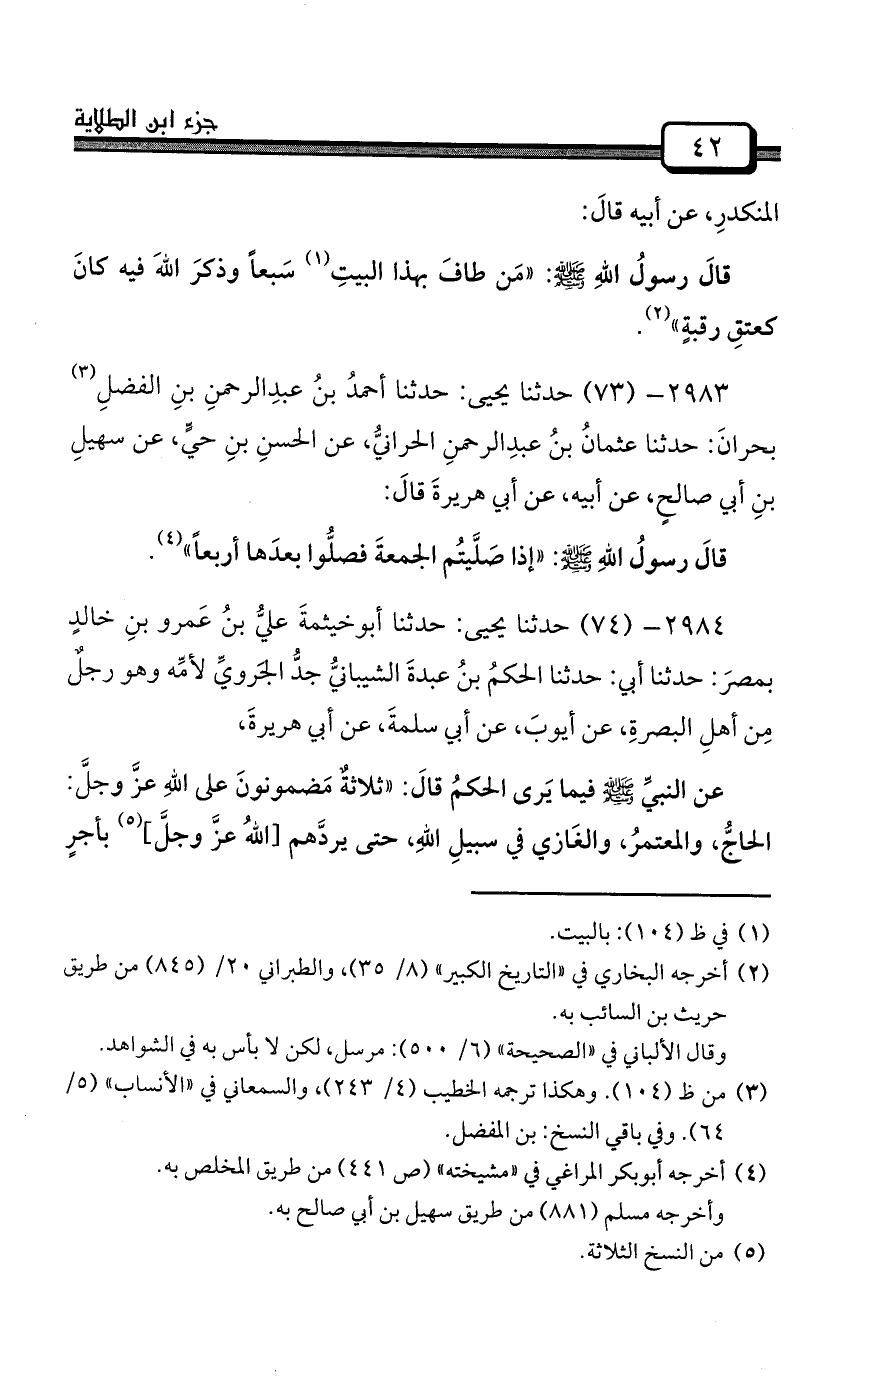 جزء ابن الطلاية
٤٢
المنكدرِ، عن أبيه قالَ:
قالَ رسولُ اللهِ ﷺ: «مَن طافَ بهذا البيتِ(١) سَبعاً وذكرَ اللهَ فيه كانَ
كعتقِ رقبةٍ»(٢).
٢٩٨٣- (٧٣) حدثنا يحيى: حدثنا أحمدُ بنُ عبدِالرحمنِ بنِ الفضلِ(٣)
بحرانَ: حدثنا عثمانُ بنُ عبدِالرحمنِ الحرانيُّ، عن الحسنِ بنِ حيٍّ، عن سهيلِ
بنِ أبي صالحٍ، عن أبيه، عن أبي هريرةَ قالَ:
قالَ رسولُ اللهِ ﷺ: «إذا صَلَّيتُم الجمعةَ فصلُّوا بعدَها أربعاً»(٤).
٢٩٨٤- (٧٤) حدثنا يحيى: حدثنا أبوخيثمةَ عليُّ بنُ عَمرو بنِ خالدٍ
بمصرَ: حدثنا أبي: حدثنا الحكمُ بنُ عبدةَ الشيبانيُّ جدُّ الجَرويِّ لأمِّه وهو رجلٌ
مِن أهلِ البصرةِ، عن أيوبَ، عن أبي سلمةَ، عن أبي هريرةَ،
عن النبيِّ ﷺ فيما يَرى الحكمُ قالَ: «ثلاثةٌ مَضمونونَ على اللهِ عزَّ وجلَّ:
الحاجُّ، والمعتمرُ، والغَازي في سبيلِ اللهِ، حتى يردَّهم [اللهُ عزَّ وجلَّ](٥) بأجرٍ
(١) في ظ (١٠٤): بالبيت.
(٢) أخرجه البخاري في «التاريخ الكبير» (٨/ ٣٥)، والطبراني ٢٠/ (٨٤٥) من طريق
حريث بن السائب به.
وقال الألباني في «الصحيحة» (٦/ ٥٠٠): مرسل، لكن لا بأس به في الشواهد.
(٣) من ظ (١٠٤). وهكذا ترجمه الخطيب (٤/ ٢٤٣)، والسمعاني في «الأنساب» (٥/
٦٤). وفي باقي النسخ: بن المفضل.
(٤) أخرجه أبوبكر المراغي في «مشيخته» (ص ٤٤١) من طريق المخلص به.
وأخرجه مسلم (٨٨١) من طريق سهيل بن أبي صالح به.
(٥) من النسخ الثلاثة.